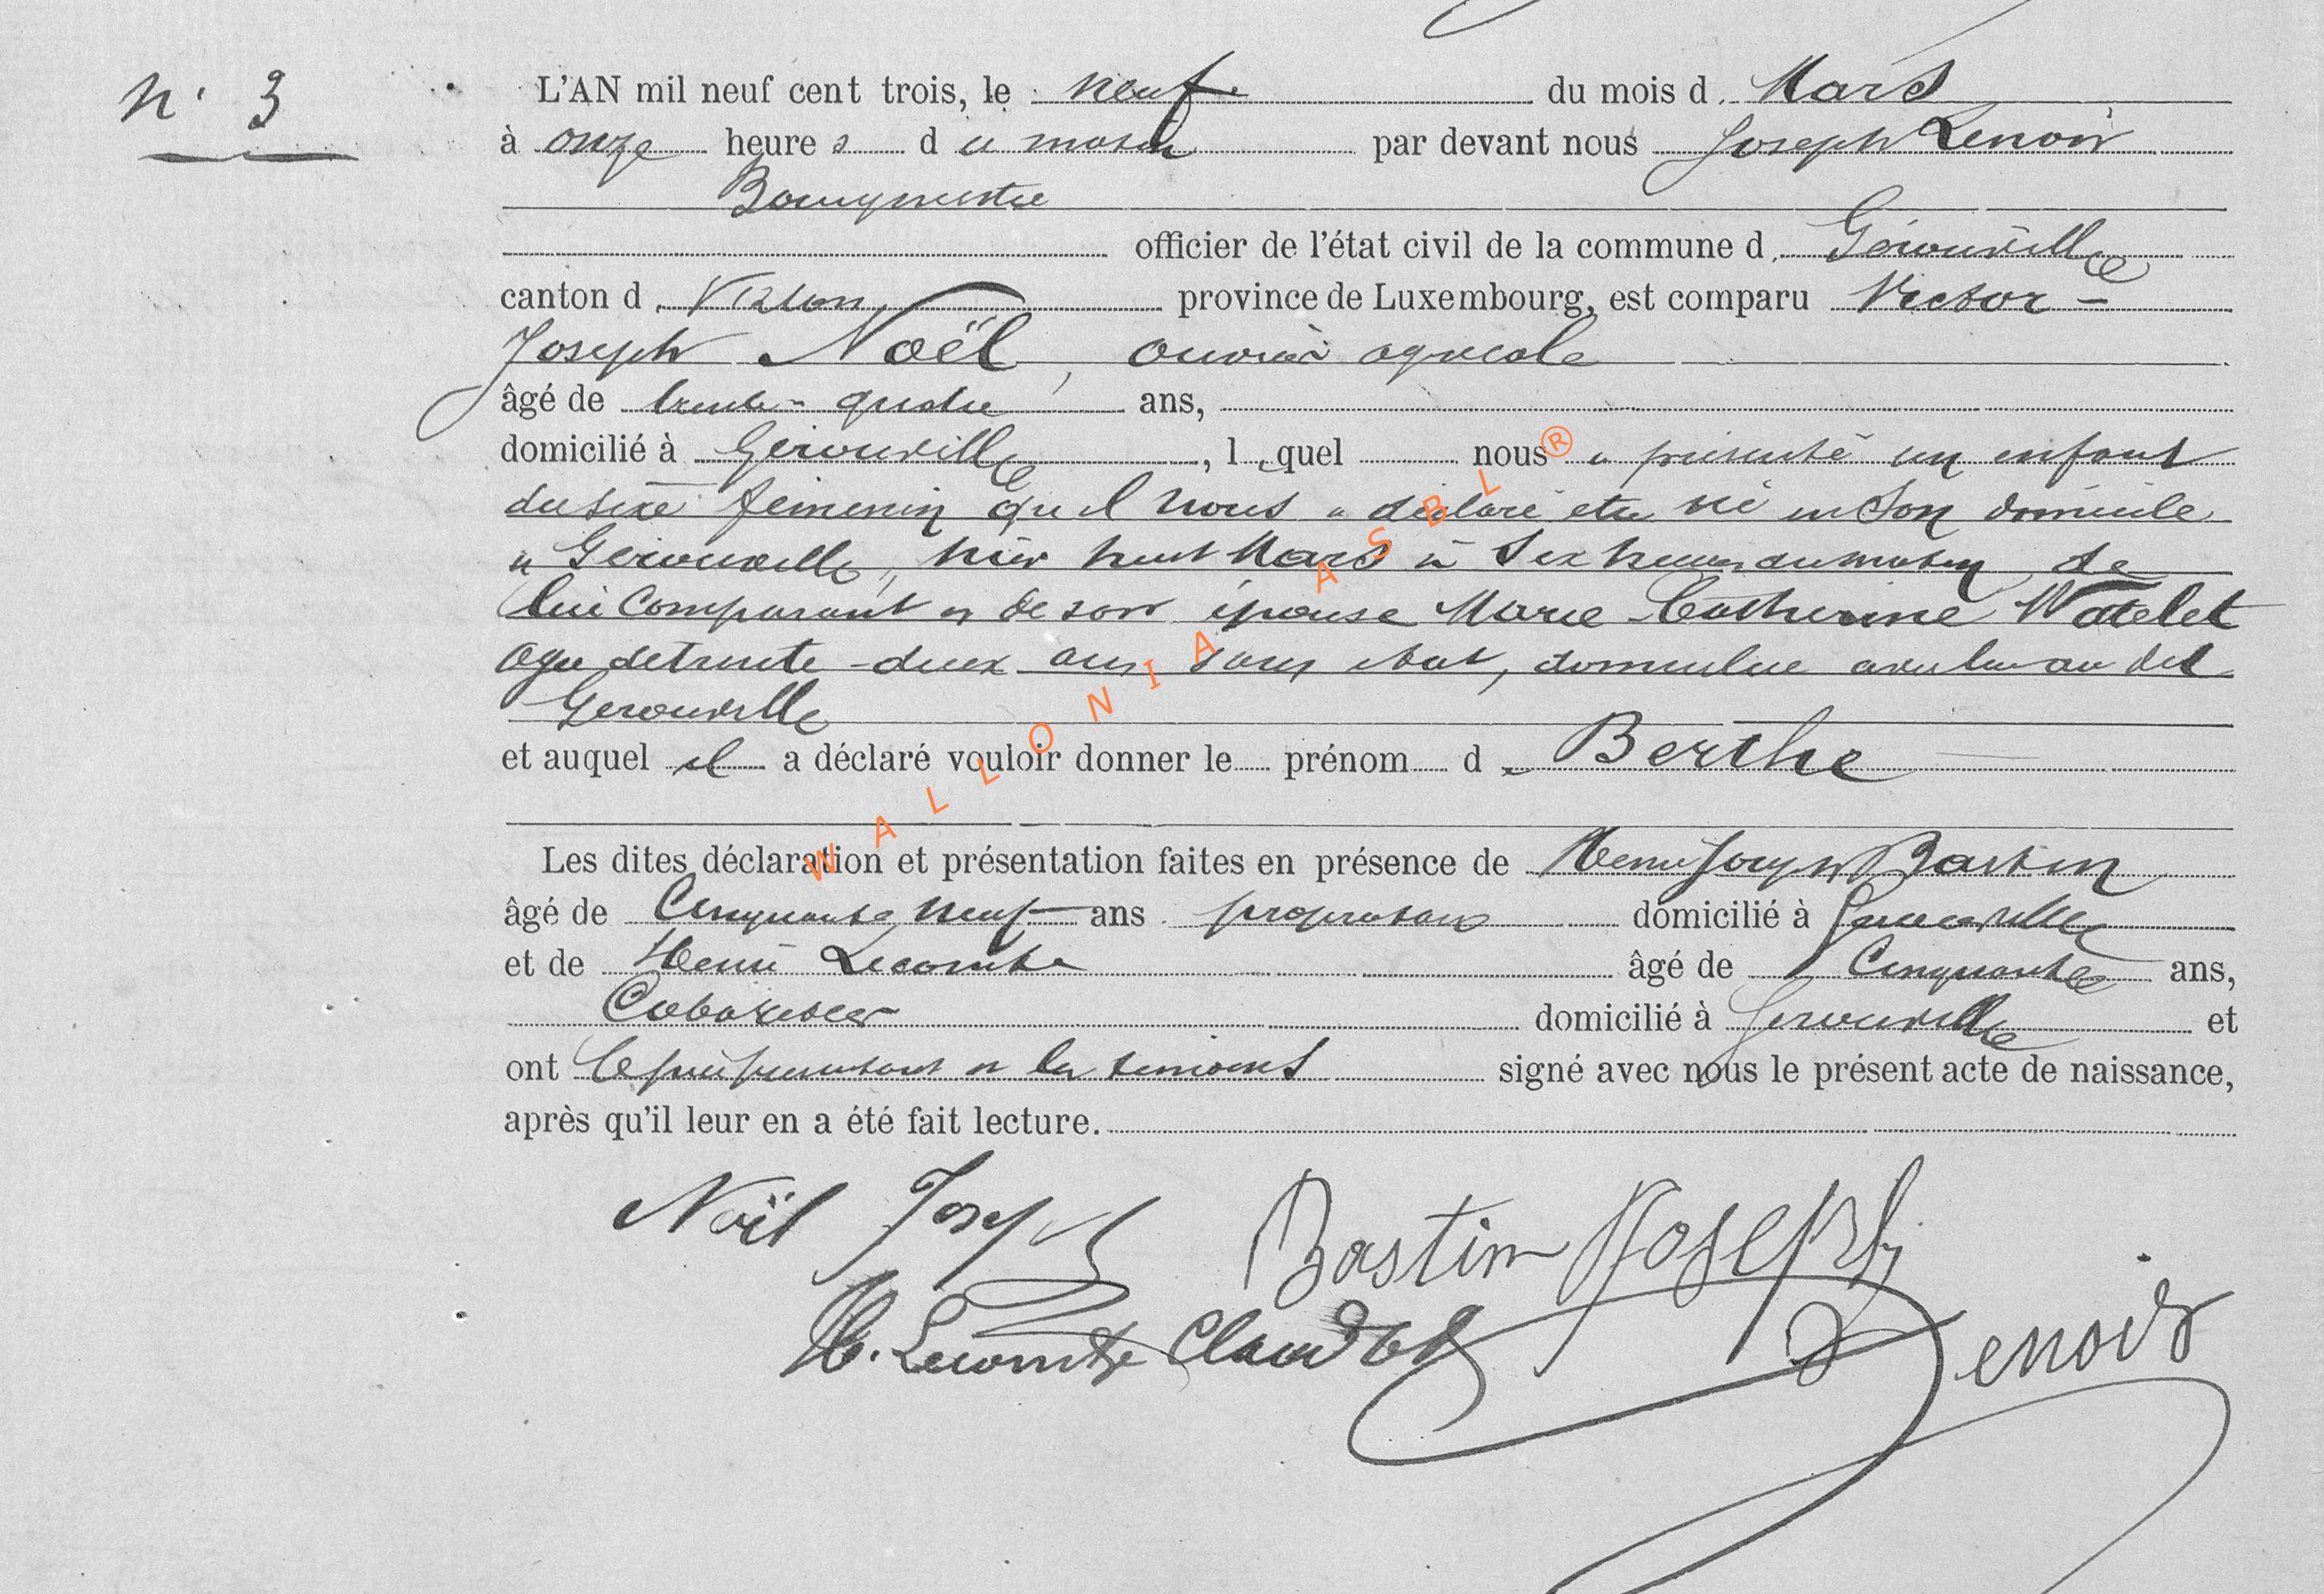 N° 3
L'AN mil neuf cent trois, le neuf du mois de Mars
à onze heures du matin par devant nous Joseph Lenoir
Bourgmestre
officier de l'état civil de la commune de Gérouville
canton de Virton province de Luxembourg, est comparu Victor-
Joseph Noël, ouvrier agricole
âgé de trente-quatre ans,
domicilié à Gérouville, lequel nous a présenté un enfant
du sexe féminin qu'il nous a déclaré être né en son domicile
à Gérouville, hier huit Mars à six heures du matin, de
lui Comparant et de son épouse Marie-Catherine Watelet
agée de trente-deux ans, sans état, domiciliée avec lui au dit
Gérouville
et auquel il a déclaré vouloir donner le prénom de Berthe
Les dites déclaration et présentation faites en présence de Henri Joseph Bastin
âgé de Cinquante neuf ans propriétaire domicilié à Gérouville
et de Henri Lecomte âgé de Cinquante ans,
Cabaretier domicilié à Gérouville et
ont le père présentant et les témoins signé avec nous le présent acte de naissance,
après qu'il leur en a été fait lecture.
Noël Joseph Bastin Joseph
H. Lecomte Claudot Lenoir
WALLONIA ASBL®